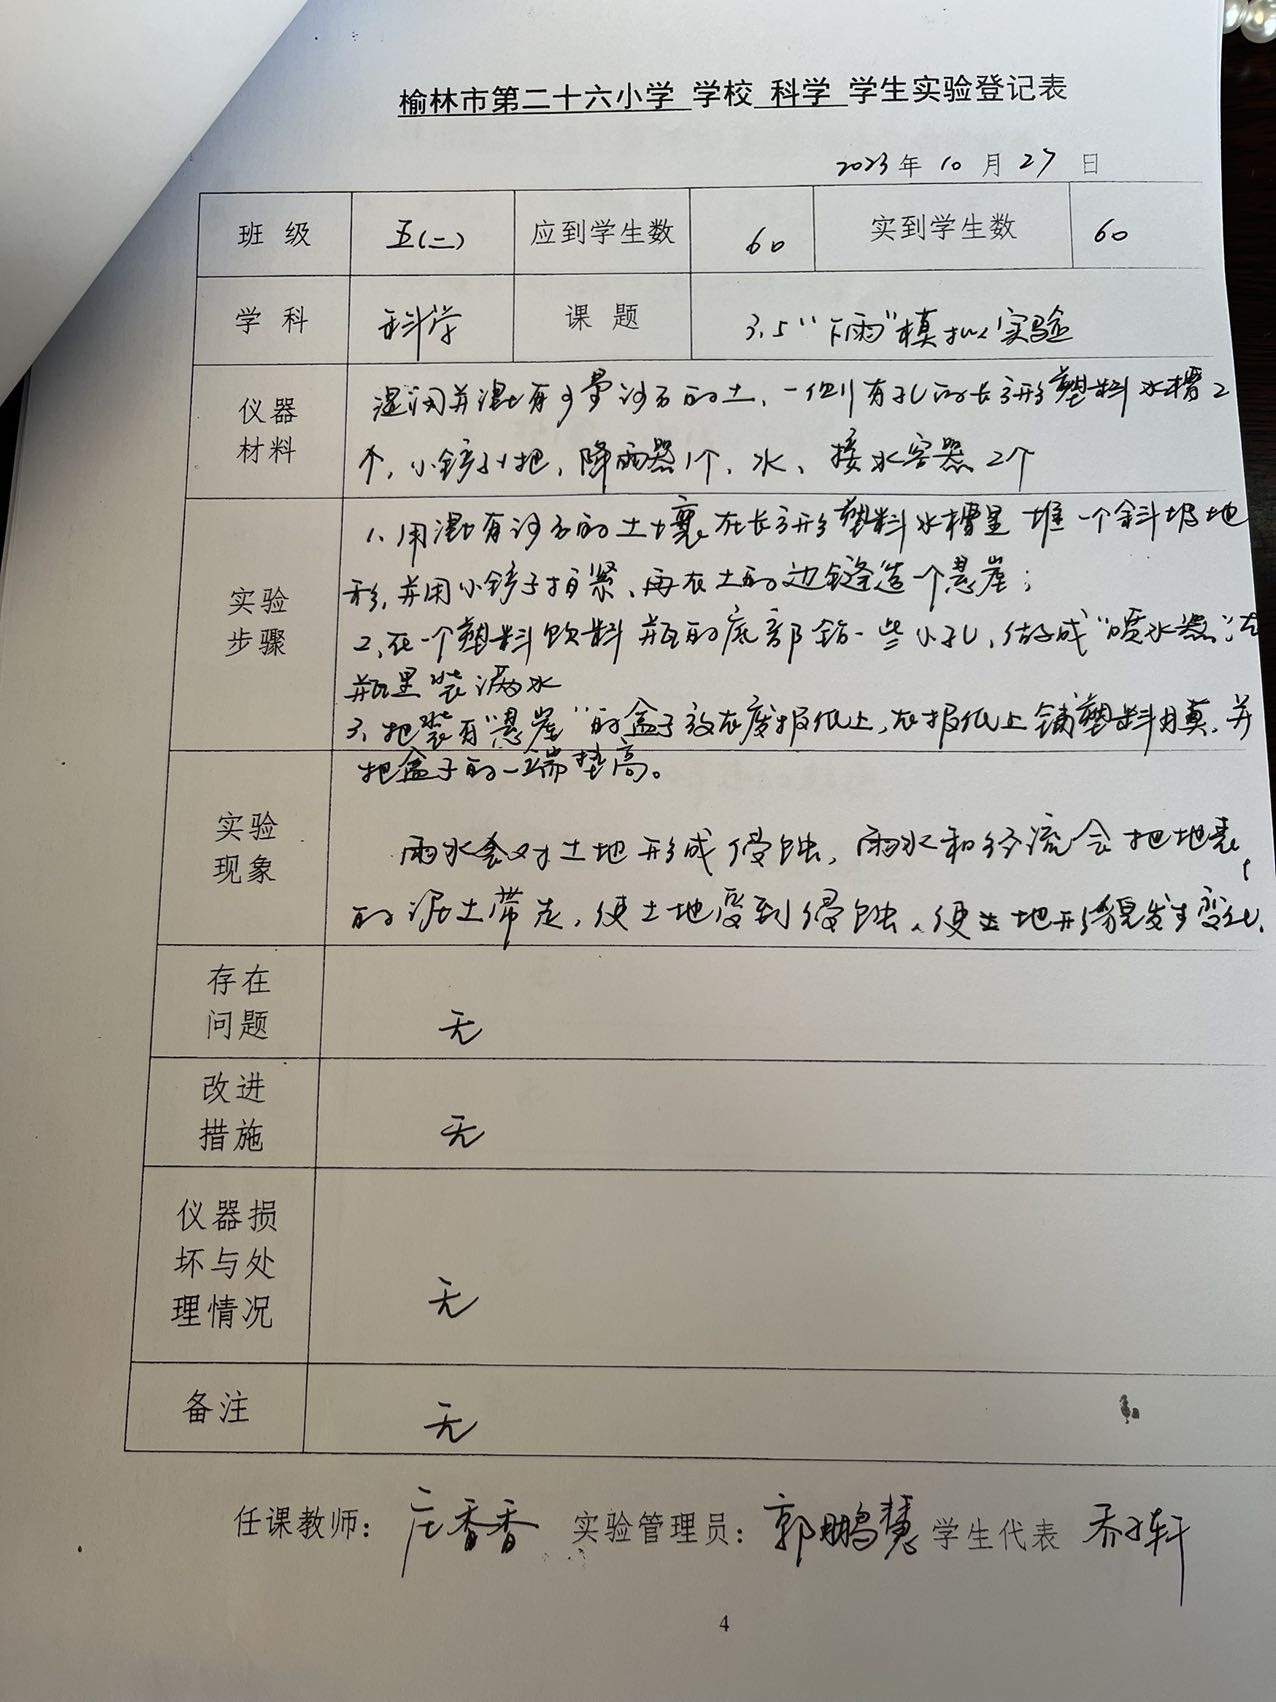 榆林市第二十六小学 学校 科学 学生实验登记表
2023 年 10 月 27 日
班 级 五(二) 应到学生数 60 实到学生数 60
学 科 科学 课 题 3.5“下雨”模拟实验
仪器材料
湿润并混有少量沙石的土、一侧有孔的长方形塑料水槽2
个,小铲子1把,降雨器1个、水、接水容器2个
实验步骤
1、用混有沙石的土壤在长方形塑料水槽里堆一个斜坡地
形,并用小铲子拍紧、再在土的边缝造一个悬崖;
2、在一个塑料饮料瓶的底部钻一些小孔,做成“喷水器”在
瓶里装满水
3、把装有“悬崖”的盒子放在废报纸上,在报纸上铺塑料用膜,并
把盒子的一端垫高。
实验现象
雨水会对土地形成侵蚀,雨水和径流会把地表
的泥土带走,使土地受到侵蚀、使土地形貌发生变化.
存在问题
无
改进措施
无
仪器损坏与处理情况
无
备注
无
任课教师: 庄香香 实验管理员: 郭鹏慧 学生代表 乔子轩
4